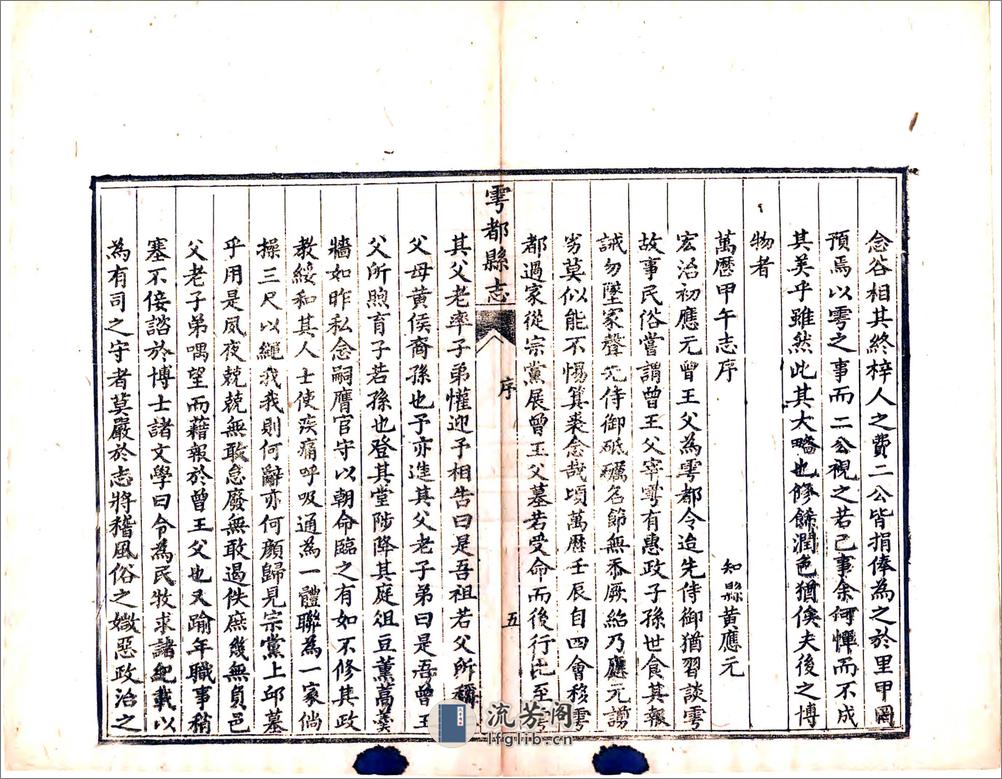 念谷相其終梓人之費二公皆捐俸為之於里甲罔
預焉以雩之事而二公視之若己事余何憚而不成
其美乎雖然此其大略也修餙潤色猶俟夫後之博
物者
萬歷甲午志序
知縣黃應元
宏治初應元曾王父為雩都令迨先侍御猶習談雩
故事民俗嘗謂曾王父宰雩有惠政子孫世食其報
誡勿墜家聲先侍御砥礪名節無忝厥紹乃應元譾
劣莫似能不惕箕裘念哉頃萬歷壬辰自四會移雩
都過家從宗黨展曾王父墓若受命而後行比至雩
雩都縣志
序
五
其父老率子弟懽迎予相告曰是吾祖若父所稱
父母黃侯裔孫也予亦進其父老子弟曰是吾曾王
父所煦育子若孫也登其堂陟降其庭俎豆薰蒿羹
牆如昨私念嗣膺官守以朝命臨之有如不修其政
教綏和其人士使疾痛呼吸通為一體聯為一家倘
操三尺以繩我我則何辭亦何顏歸見宗黨上邱墓
乎用是夙夜兢兢無敢怠廢無敢遏佚庶幾無負邑
父老子弟喁望而藉報於曾王父也又踰年職事稍
塞不佞諮於博士諸文學曰令為民牧求諸紀載以
為有司之守者莫嚴於志將稽風俗之媺惡政治之
流芳阁
lfglib.cn